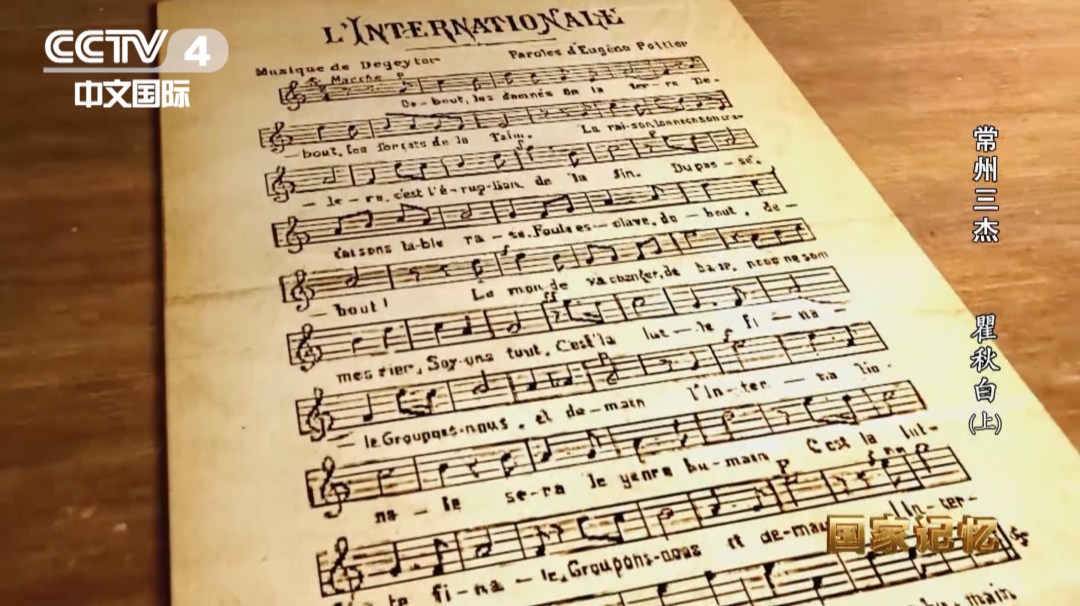 CCTV 4
中文国际
L'INTERNATIONALE
Musique de Degeyter
Paroles d'Eugène Pottier
Marche p
De-bout, les damnés de la ter-re De-
-bout, les forçats de la faim. La rai-son
-le-re, c'est l'é-rup-tion de la fin. Du pas-sé,
fai sons ta-ble ra-se, Foule es-clave, de-bout, de-
-bout! Le mon-de va changer, de base, nous ne som
mes rien, Soy-ons tout, C'est la lut-te fi-na-
-le, Groupons-nous, et de-main l'In-ter-na tio-
na-le se-ra le genre humain C'est la lut-
te fi-na-le, Groupons-nous et demain l'In-ter-
常州三杰
瞿秋白(上)
国家记忆